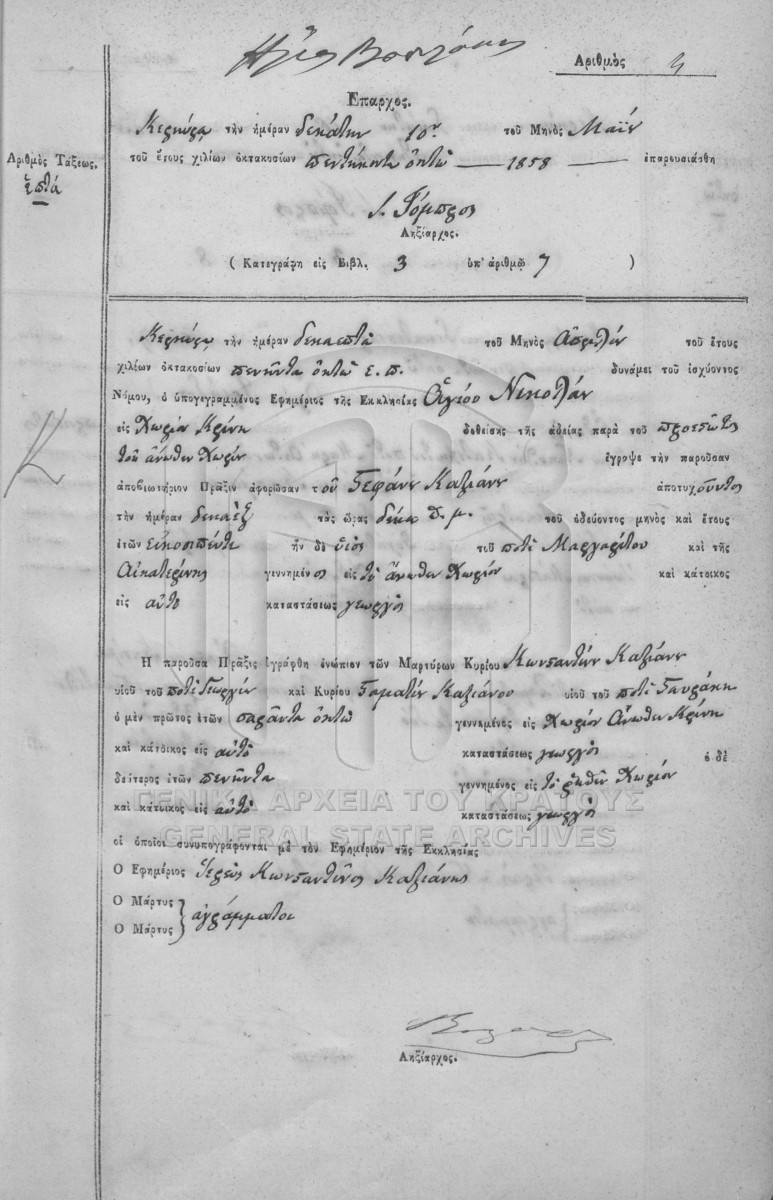 Αριθμὸς
Επαρχος.
Κερκύρᾳ τὴν ἡμέραν δεκάτην 10ην τοῦ Μηνὸς Μαΐου
Αριθμὸς Τάξεως.
ἑπτά
τοῦ ἔτους χιλίων ὀκτακοσίων πεντήκοντα ὀκτὼ — 1858 — ἐπαρουσιάσθη
Ληξίαρχος.
( Κατεγράφη εἰς Βιβλ. 3 ὑπ' ἀριθμῷ 7 )
Κερκύρᾳ τὴν ἡμέραν δεκαεπτὰ τοῦ Μηνὸς Ἀπριλίου τοῦ ἔτους
χιλίων ὀκτακοσίων πενῆντα ὀκτὼ ε. π. δυνάμει τοῦ ἰσχύοντος
Νόμου, ὁ ὑπογεγραμμένος Ἐφημέριος τῆς Ἐκκλησίας Ἁγίου Νικολάου
εἰς Χωρίον Κρίνη δοθείσης τῆς ἀδείας παρὰ τοῦ προεστῶτος
τοῦ ἄνωθεν Χωρίου ἔγραψε τὴν παροῦσαν
ἀποβιωτήριον Πρᾶξιν ἀφορῶσαν τοῦ Στεφάνου Καζιάνη ἀποτυχόντος
τὴν ἡμέραν δεκαὲξ τὰς ὥρας δέκα π. μ. τοῦ ὁδεύοντος μηνὸς καὶ ἔτους
ἐτῶν εἰκοσιπέντε ἦν δὲ υἱὸς τοῦ ποτὲ Μαργαρίτου καὶ τῆς
Αἰκατερίνης γεννημένος εἰς τὸ ἄνωθεν Χωρίον καὶ κάτοικος
εἰς αὐτὸ καταστάσεως γεωργὸς
Ἡ παροῦσα Πρᾶξις ἐγράφθη ἐνώπιον τῶν Μαρτύρων Κυρίου Κωνσταντίνου Καζιάνη
υἱοῦ τοῦ ποτὲ Γεωργίου καὶ Κυρίου Σταματίου Καζιάνου υἱοῦ τοῦ ποτὲ Σταυράκη
ὁ μὲν πρῶτος ἐτῶν σαράντα ὀκτὼ γεννημένος εἰς Χωρίον Ἄνωθεν Κρίνη
καὶ κάτοικος εἰς αὐτὸ καταστάσεως γεωργὸς ὁ δὲ
δεύτερος ἐτῶν πενῆντα γεννημένος εἰς τὸ ῥηθὲν Χωρίον
καὶ κάτοικος εἰς αὐτὸ καταστάσεως γεωργὸς
οἱ ὁποῖοι συνυπογράφονται μὲ τὸν Ἐφημέριον τῆς Ἐκκλησίας
Ο Ἐφημέριος Ἱερεὺς Κωνσταντῖνος Καζιάνης
Ο Μάρτυς
Ο Μάρτυς } ἀγράμματοι
Ληξίαρχος.
ΓΕΝΙΚΑ ΑΡΧΕΙΑ ΤΟΥ ΚΡΑΤΟΥΣ
GENERAL STATE ARCHIVES